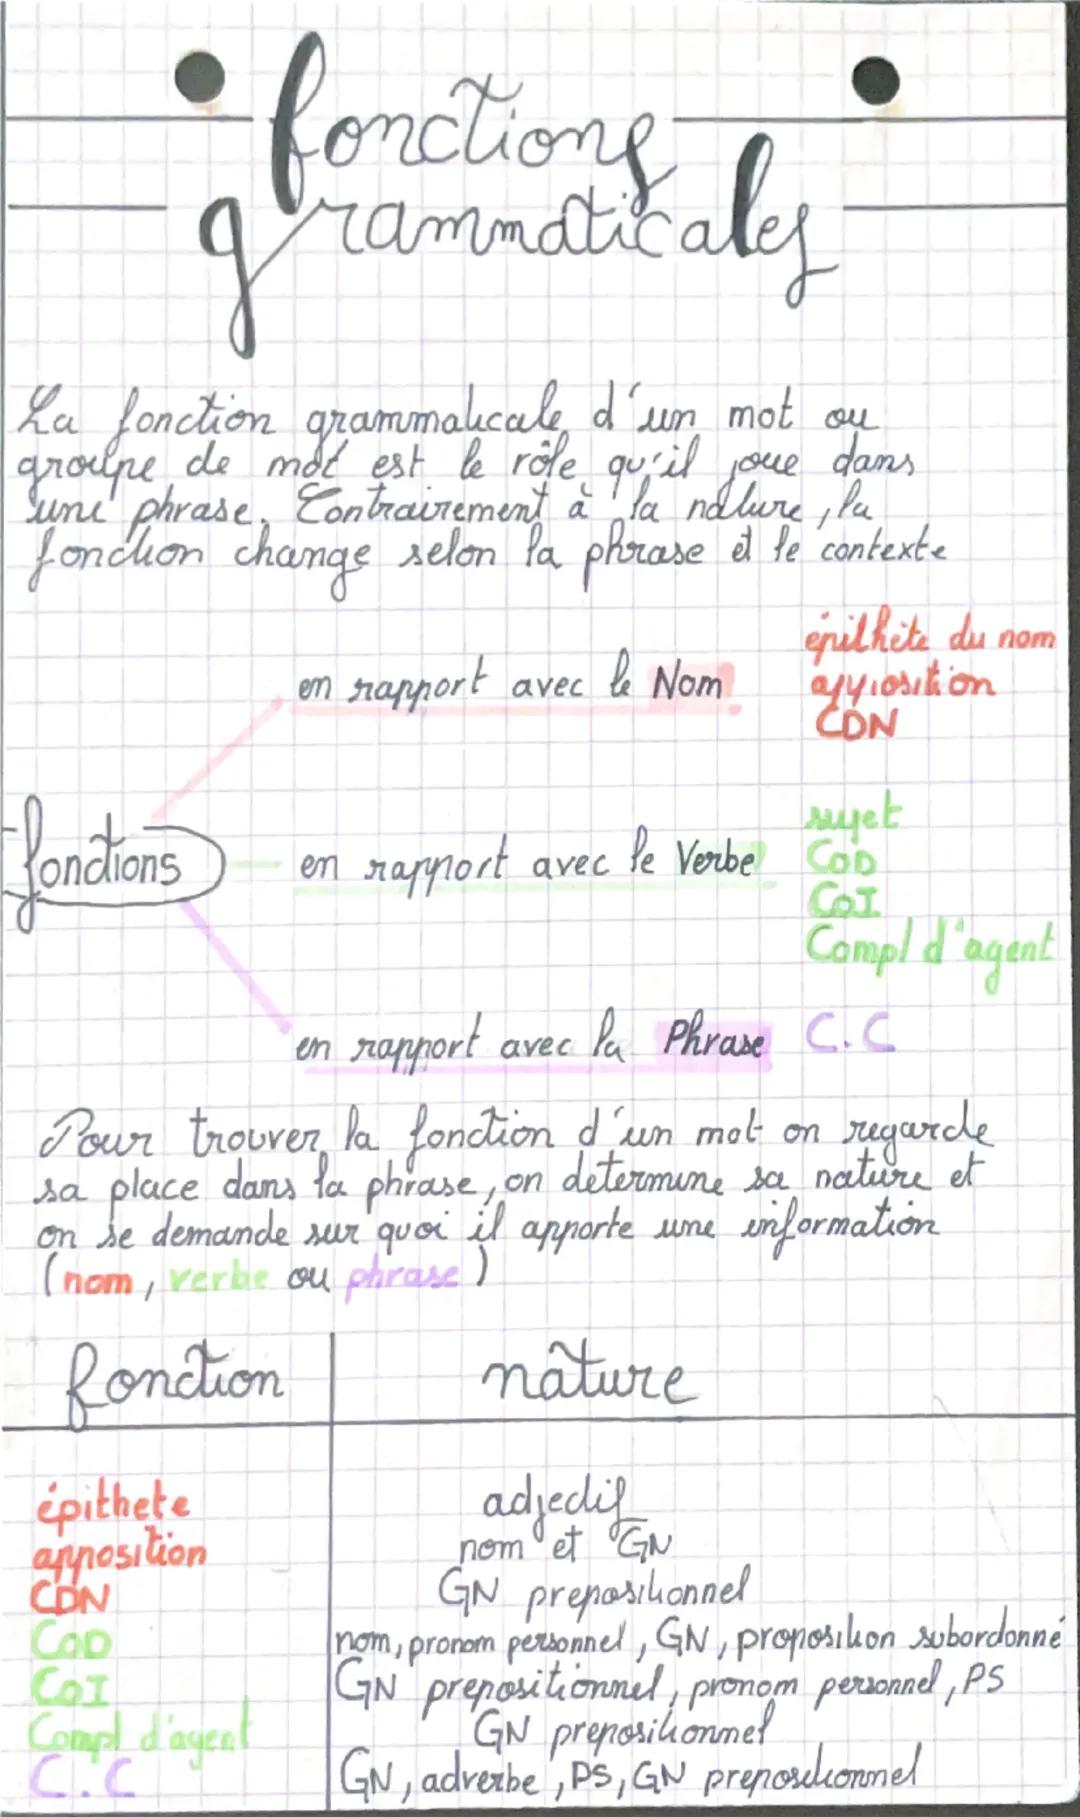 fonctions
grammaticales
La fonction grammaticale d'un mot ou
groupe de mot est le rôle qu'il joue dans
une phrase. Contrairement à la nature, la
fonction change selon la phrase et le contexte
épithète du nom
en rapport avec le Nom
apposition
CDN
sujet
fonctions
en rapport avec le Verbe
COD
COI
Compl d'agent
en rapport avec la Phrase
C.C
Pour trouver la fonction d'un mot on regarde
sa place dans la phrase, on determine sa nature et
on se demande sur quoi il apporte une information
(nom, verbe ou phrase)
fonction nature
épithete adjectif
apposition nom et GN
CDN GN prepositionnel
COD nom, pronom personnel, GN, proposition subordonné
COI GN prepositionnel, pronom personnel, PS
Compl d'agent GN prepositionnel
C.C GN, adverbe, PS, GN prepositionnel